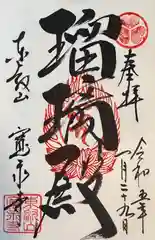 奉拝
令和五年
一月二十九日
瑠璃殿
東叡山
寛永寺